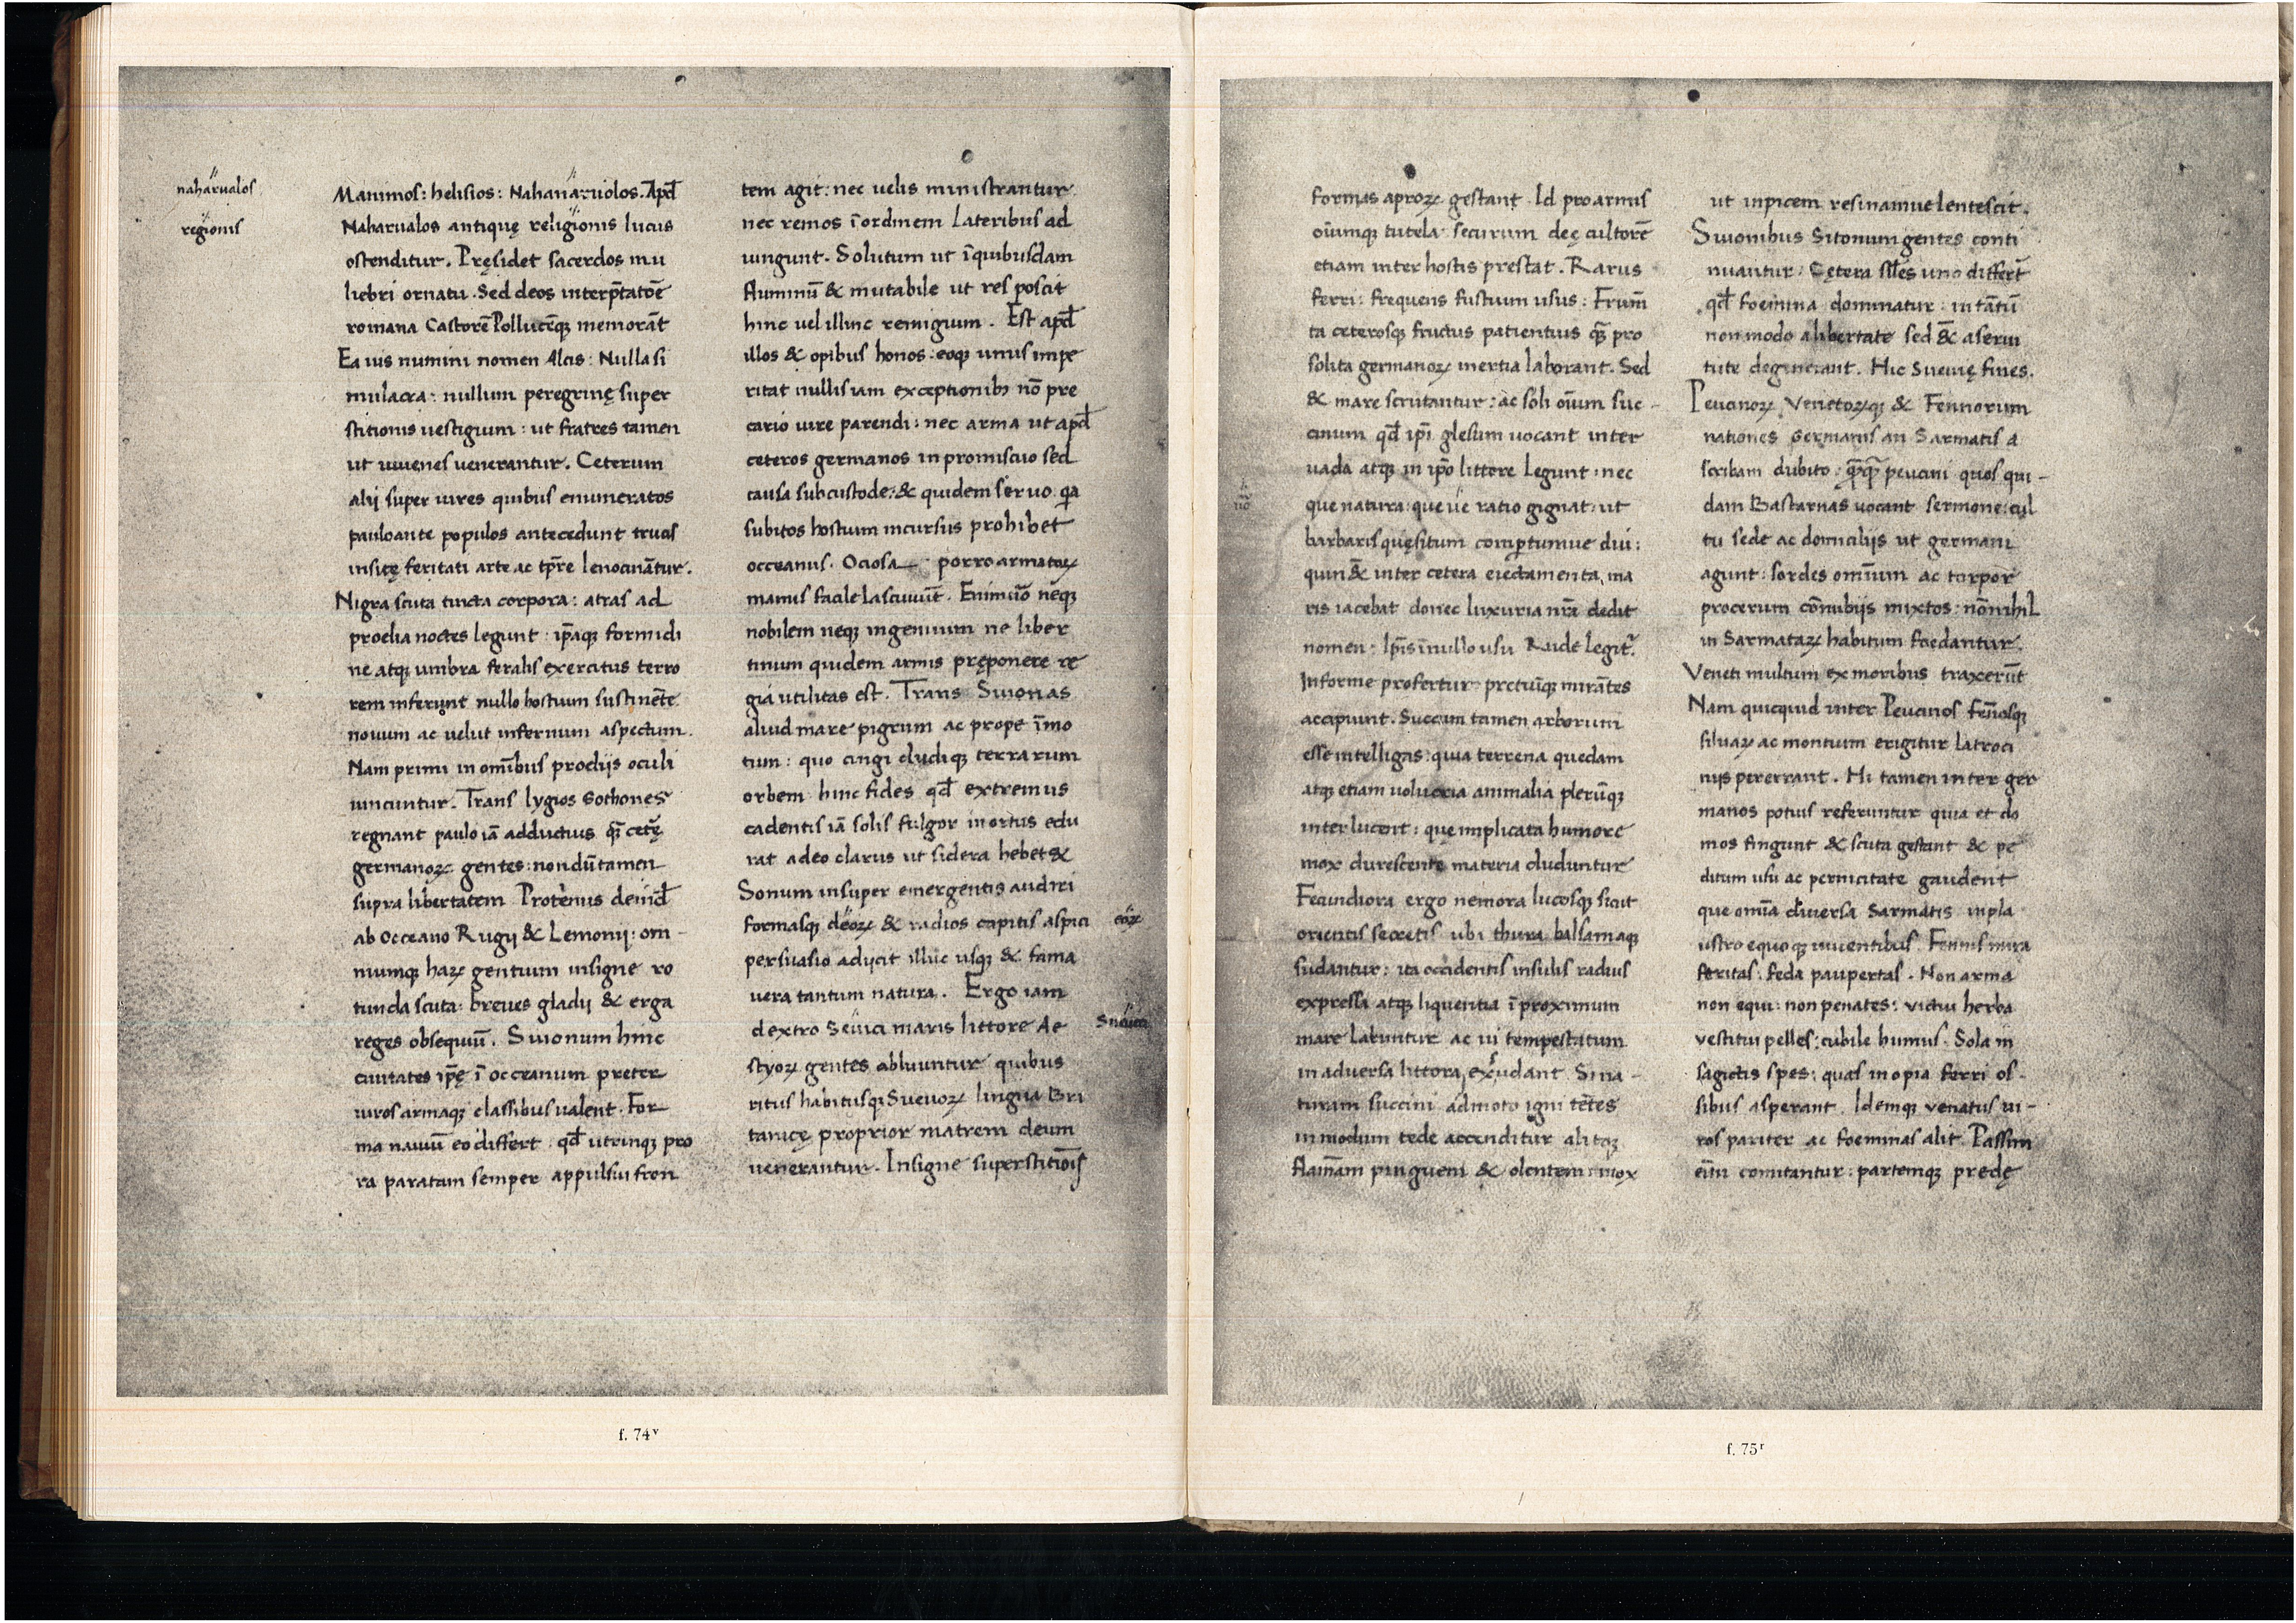 naharualos
regionis
Manimos: helisios: Nahanaruolos. Apđ
Naharualos antiquę religionis lucus
ostenditur. Pręsidet sacerdos mu
liebri ornatu. Sed deos interp̄tatōe
romana Castorē Pollucēq; memorāt
Ea uis numini nomen Alcis: Nulla si
mulacra: nullum peregrinę super
stitionis uestigium: ut fratres tamen
ut iuuenes uenerantur. Ceterum
alij super uires quibus enumeratos
pauloante populos antecedunt truces
insitę feritati arte ac tp̄re lenocinātur.
Nigra scuta tincta corpora: atras ad
proelia noctes legunt: ip̄aq; formidi
ne atq; umbra feralis exercitus terro
rem inferunt nullo hostium sustinēte
nouum ac uelut infernum aspectum.
Nam primi in omībus proelijs oculi
uincuntur. Trans lygios Gothones
regnant paulo iā adductius q̄ cetę
germanoꝝ gentes: nondū tamen
supra libertatem Protenus deinđ
ab occeano Rugij & Lemonij: om-
niumq; haꝝ gentium insigne ro
tunda scuta: breues gladij & erga
reges obsequiū. Suionum hinc
ciuitates ip̄ę ī occeanum preter
uiros armaq; classibus ualent. For
ma nauiū eo differt qđ utrinq; pro
ra paratam semper appulsui fron
tem agit: nec uelis ministrantur
nec remos ī ordinem lateribus ad
iungunt. Solutum ut ī quibusdam
fluminū & mutabile ut res poscit
hinc uel illinc remigium. Est apđ
illos & opibus honos: eoq; unus impe
ritat nullis iam exceptionib; nō pre
cario iure parendi: nec arma ut apđ
ceteros germanos in promiscuo sed
clausa sub custode: & quidem seruo. qa
subitos hostium incursus prohibet
occeanus. Ociosa porro armatoꝝ
manus facile lasciuiūt. Enimūo neq;
nobilem neq; ingenuum ne liber
tinum quidem armis pręponere re
gia utilitas est. Trans Suionas
aliud mare pigrum ac prope īmo
tum: quo cingi cludiq; terrarum
orbem hinc fides qđ extremus
cadentis iā solis fulgor in ortus edu
rat adeo clarus ut sidera hebet&
Sonum insuper emergentis audiri
formasq; deoꝝ & radios capitis aspici eoꝝ
persuasio adijcit illuc usq; & fama
uera tantum natura. Ergo iam
dextro Seuici maris littore Ae Sueuici
styoꝝ gentes abluuntur quibus
ritus habitusq; Sueuoꝝ lingua Bri
tanicę proprior matrem deum
uenerantur. Insigne superstitiōis
formas aproꝝ gestant. Id pro armis
oiumq; tutela securum deę cultorē
etiam inter hostis prestat. Rarus
ferri: frequens fustium usus: Frum̄
ta ceterosq; fructus patientius q̄ pro
solita germanoꝝ inertia laborant. Sed
& mare scrutantur: ac soli oīum suc-
cinum qđ ip̄i glesum uocant inter
uada atq; in ip̄o littore legunt: nec
que natura: queue ratio gignat: ut
barbaris quęsitum compertumue diu:
quin & inter cetera eiectamenta ma
ris iacebat donec luxuria nr̄a dedit
nomen: Ip̄is ī nullo usu Rude legit̃.
Informe profertur: pretiūq; mirātes
accipiunt. Succum tamen arborum
esse intelligas: quia terrena quedam
atq; etiam uolucria animalia plerūq;
interlucent: que implicata humore
mox durescente materia cluduntur
Fecundiora ergo nemora lucosq; sicut
orientis secretis ubi thura balsamaq;
sudantur: ita occidentis insulis radius
expressa atq; liquentia ī proximum
mare labuntur ac ui tempestatum
in aduersa littora exudant Si na-
turam succini admoto igni tētes
in modum tede accenditur alitq;
flamam pinguem & olentem: mox
ut in picem resinamue lentescit.
Suionibus Sitonum gentes conti
nuantur: Cętera siles uno differt̃
qđ foemina dominatur: in tātū
non modo a libertate sed & a serui
tute degenerant. Hic Sueuię fines.
Peucinoꝝ Venetoꝝq; & Fennorum
nationes germanis an Sarmatis a
scribam dubito: q̄q̄ peucini quos qui-
dam Bastarnas uocant sermone: cul
tu sede ac domicilijs ut germani
agunt: sordes omīum ac torpor
procerum cōnubijs mixtos: nōnihil
in Sarmataꝝ habitum foedantur.
Veneti multum ex moribus traxerūt
Nam quicquid inter Peucinos fēnosq;
siluaꝝ ac montium erigitur latroci
nijs pererrant. Hi tamen inter ger
manos potius referuntur quia et do
mos fingunt & scuta gestant & pe
ditum usu ac pernicitate gaudent
que omīa diuersa Sarmatis in pla
ustro equoq; uiuentibus. Fennis mira
feritas: feda paupertas. Non arma
non equi: non penates: victui herba
vestitui pelles: cubile humus. Sola in
sagictis spes: quas inopia ferri os-
sibus asperant. Idemq; venatus ui-
ros pariter ac foeminas alit. Passim
eīm comitantur: partemq; predę
f. 74ᵛ
f. 75ʳ